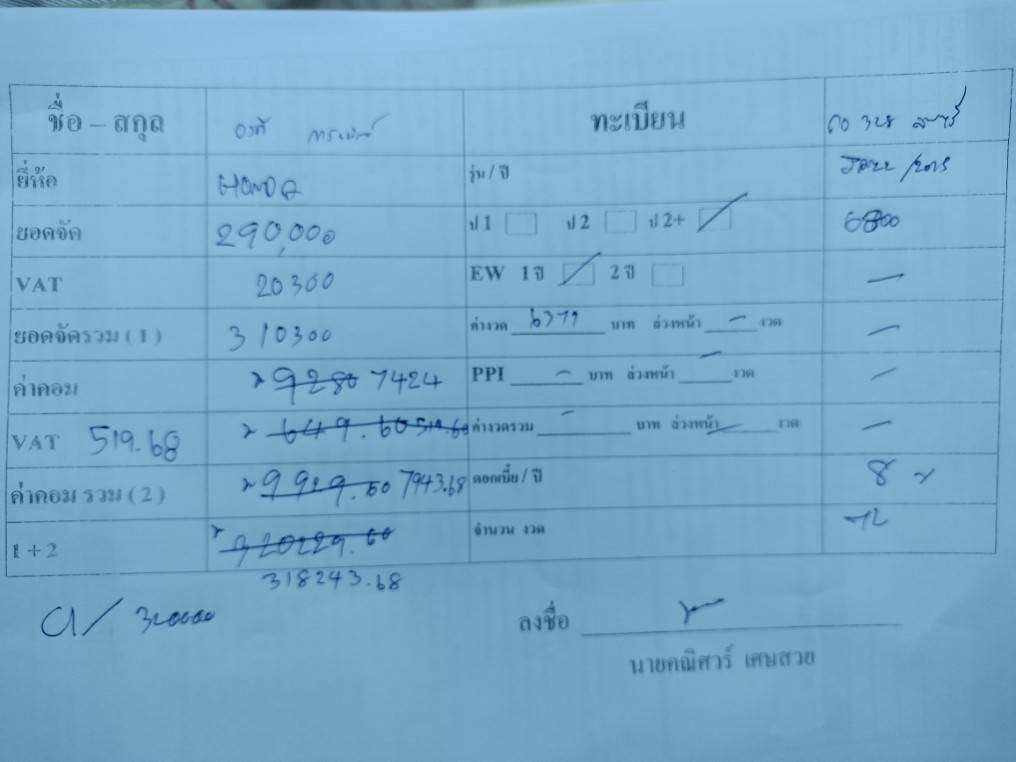 ชื่อ – สกุล ทะเบียน
ยี่ห้อ HONDA รุ่น / ปี JAZZ /2015
ยอดจัด 290,000 ป 1 ป 2 ป 2+ 6800
VAT 20300 EW 1 ปี 2 ปี –
ยอดจัดรวม ( 1 ) 310300 ค่างวด บาท ล่วงหน้า – งวด –
ค่าคอม 9280 7424 PPI – บาท ล่วงหน้า – งวด –
VAT 519.68 649.60 519.68 ค่างวดรวม – บาท ล่วงหน้า – งวด –
ค่าคอม รวม ( 2 ) 7943.68 ดอกเบี้ย / ปี 8
1 + 2 จำนวน งวด 72
318243.68
320000
ลงชื่อ
นายคณิศวร์ เศษสวย